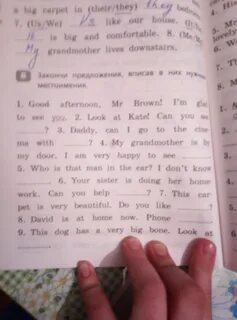 a big carpet in (their/they) they bedroom
7. (Us/We) Us like our house. (It/
is big and comfortable. 8. (Me/My)
My grandmother lives downstairs.
6 Закончи предложения, вписав в них нужные
местоимения.
1. Good afternoon, Mr Brown! I'm glad
to see you. 2. Look at Kate! Can you see
? 3. Daddy, can I go to the cinema
ma with ? 4. My grandmother is by
my door. I am very happy to see
5. Who is that man in the car? I don't know
. 6. Your sister is doing her home
work. Can you help ? 7. This car
pet is very beautiful. Do you like ?
8. David is at home now. Phone
9. This dog has a very big bone. Look at